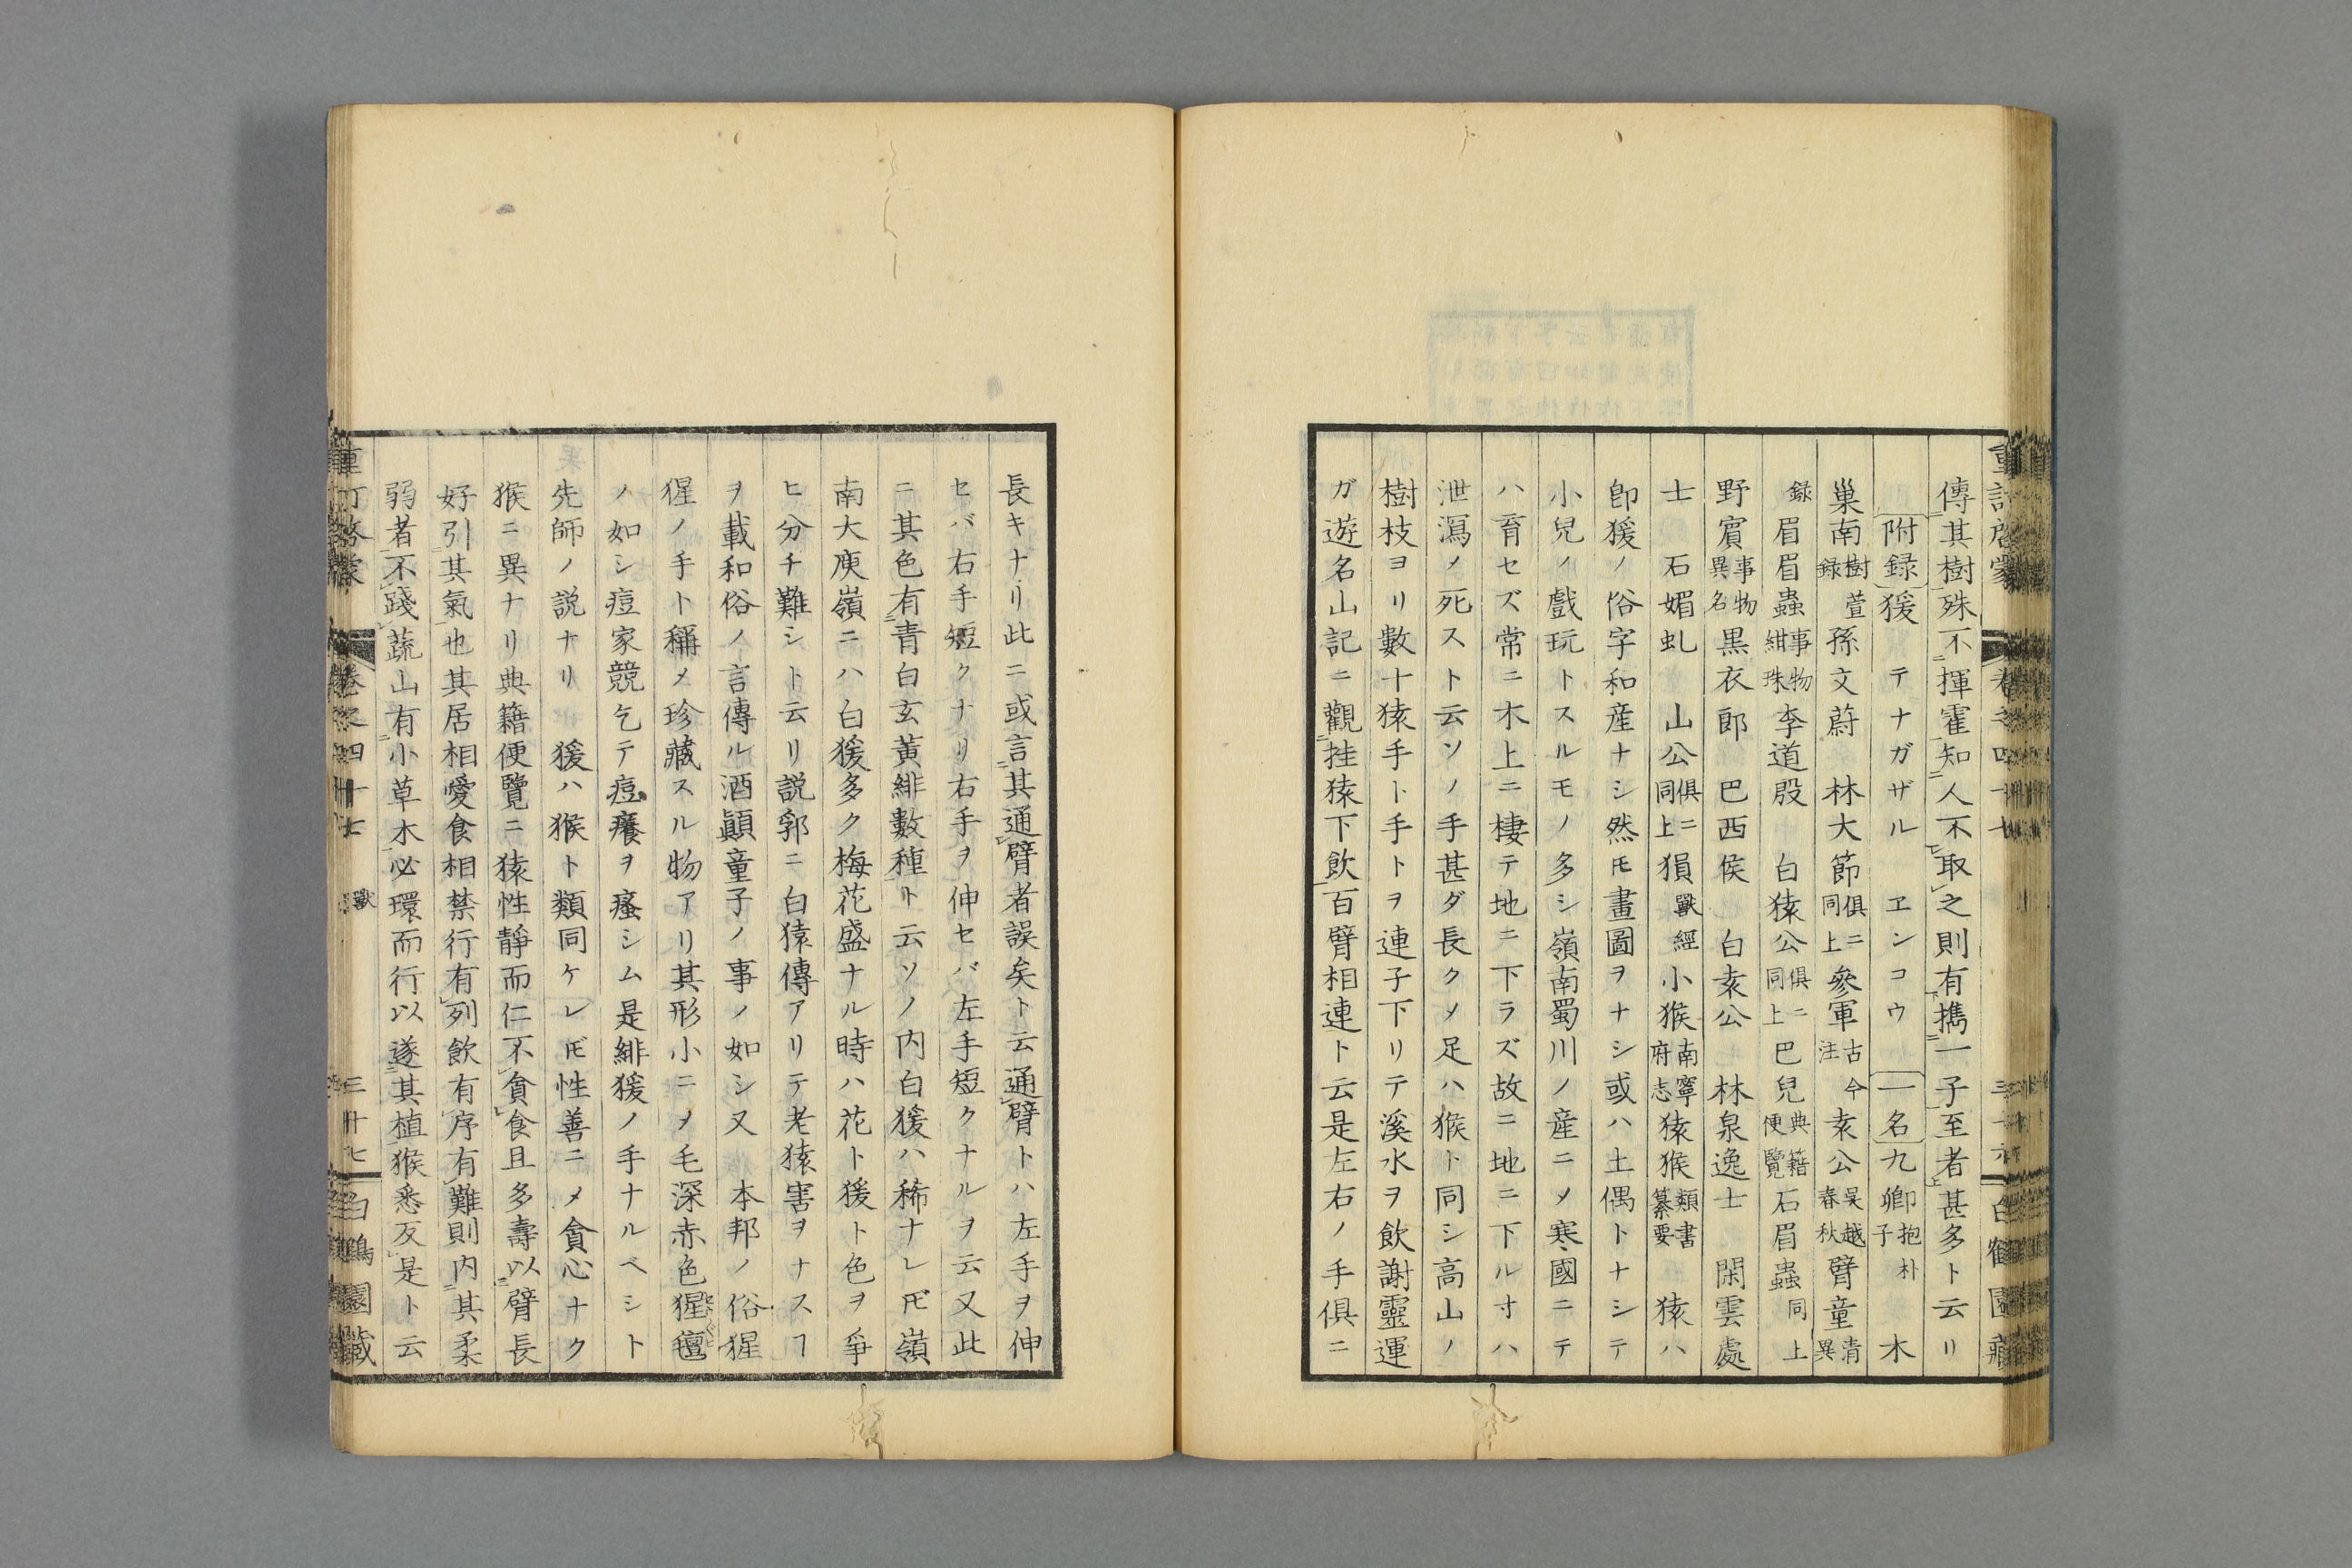 重訂啓蒙 卷之四十七 三十六 白鶴園藏
傳其樹殊不揮霍知人不取之則有擕一子至者甚多ト云リ
附録 猨 テナガザル ヱンコウ 一名 九卿 抱朴子 木
巢南 樹萱録 孫文蔚 林大節 俱ニ同上 參軍 古今注 袁公 吳越春秋 臂童 清異
録 眉眉蟲 事物紺珠 李道殷 白猿公 俱ニ同上 巴兒 典籍便覽 石眉蟲 同上
野賓 事物異名 黒衣郎 巴西侯 白袁公 林泉逸士 閑雲處
士 石媚虬 山公 俱ニ同上 猖 獸經 小猴 南寧府志 猿猴 類書纂要 猿ハ
卽猨ノ俗字和産ナシ然𪜈畫圖ヲナシ或ハ土偶トナシテ
小兒ノ戲玩トスルモノ多シ嶺南蜀川ノ産ニ〆寒國ニテ
ハ育セズ常ニ木上ニ棲テ地ニ下ラズ故ニ地ニ下ル寸ハ
泄瀉〆死スト云ソノ手甚ダ長ク〆足ハ猴ト同シ高山ノ
樹枝ヨリ數十猿手ト手トヲ連子下リテ溪水ヲ飲謝靈運
ガ遊名山記ニ觀挂猿下飲百臂相連ト云是左右ノ手俱ニ
長キナリ此ニ或言其通臂者誤矣ト云通臂トハ左手ヲ伸
セバ右手短クナリ右手ヲ伸セバ左手短クナルヲ云又此
ニ其色有青白玄黃緋數種ト云ソノ内白猨ハ稀ナレ𪜈嶺
南大庾嶺ニハ白猨多ク梅花盛ナル時ハ花ト猨ト色ヲ爭
ヒ分チ難シト云リ説郛ニ白猿傳アリテ老猿害ヲナスヿ
ヲ載和俗ノ言傳ル酒顚童子ノ事ノ如シ又 本邦ノ俗猩
猩ノ手ト稱〆珍藏スル物アリ其形小ニ〆毛深赤色猩氊
ノ如シ痘家競乞テ痘癢ヲ瘙シム是緋猨ノ手ナルベシト
先師ノ説ナリ 猨ハ猴ト類同ケレ𪜈性善ニ〆貪心ナク
猴ニ異ナリ典籍便覽ニ猿性靜而仁不貪食且多壽以臂長
好引其氣也其居相愛食相禁行有列飲有序有難則内其柔
弱者不踐蔬山有小草木必環而行以遂其植猴悉反是ト云
重訂啓蒙 卷之四十七 獸 三十七 白鶴園藏